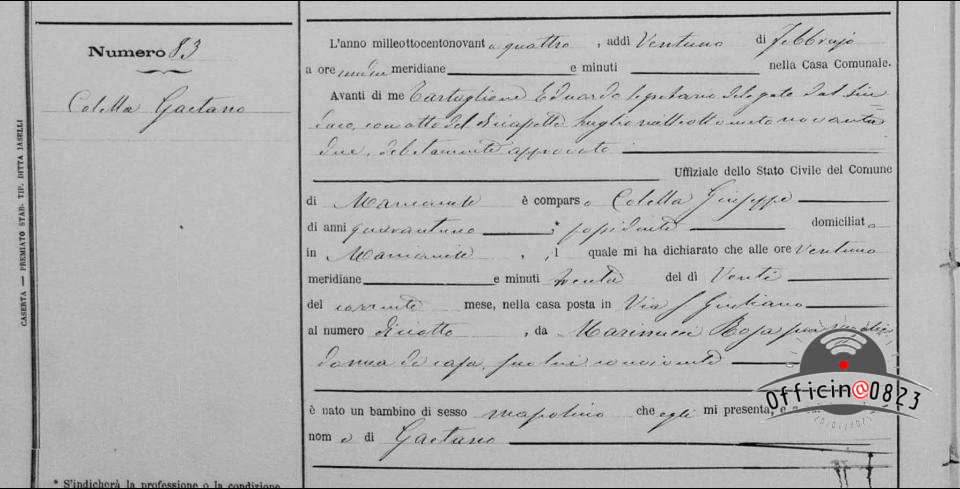 Numero 83
Colella Gaetano
CASERTA — PREMIATO STAB. TIP. DITTA IASELLI
L'anno milleottocentonovantaquattro, addì Ventuno di Febbrajo
a ore undici meridiane e minuti nella Casa Comunale.
Avanti di me Tartaglione Eduardo Segretario delegato dal Sin=
daco, con atto del diciassette luglio milleottocentonovanta
due, debitamente approvato
Uffiziale dello Stato Civile del Comune
di Marcianise è comparso Colella Giuseppe
di anni quarantuno, * possidente domiciliato
in Marcianise, il quale mi ha dichiarato che alle ore Ventuno
meridiane e minuti trenta del dì Venti
del corrente mese, nella casa posta in Via S Giuliano
al numero diciotto, da Rosa
donna di casa, seco lui convivente
è nato un bambino di sesso mascolino che egli mi presenta, e a
nome di Gaetano
* S'indicherà la professione o la condizione
Officin@0823